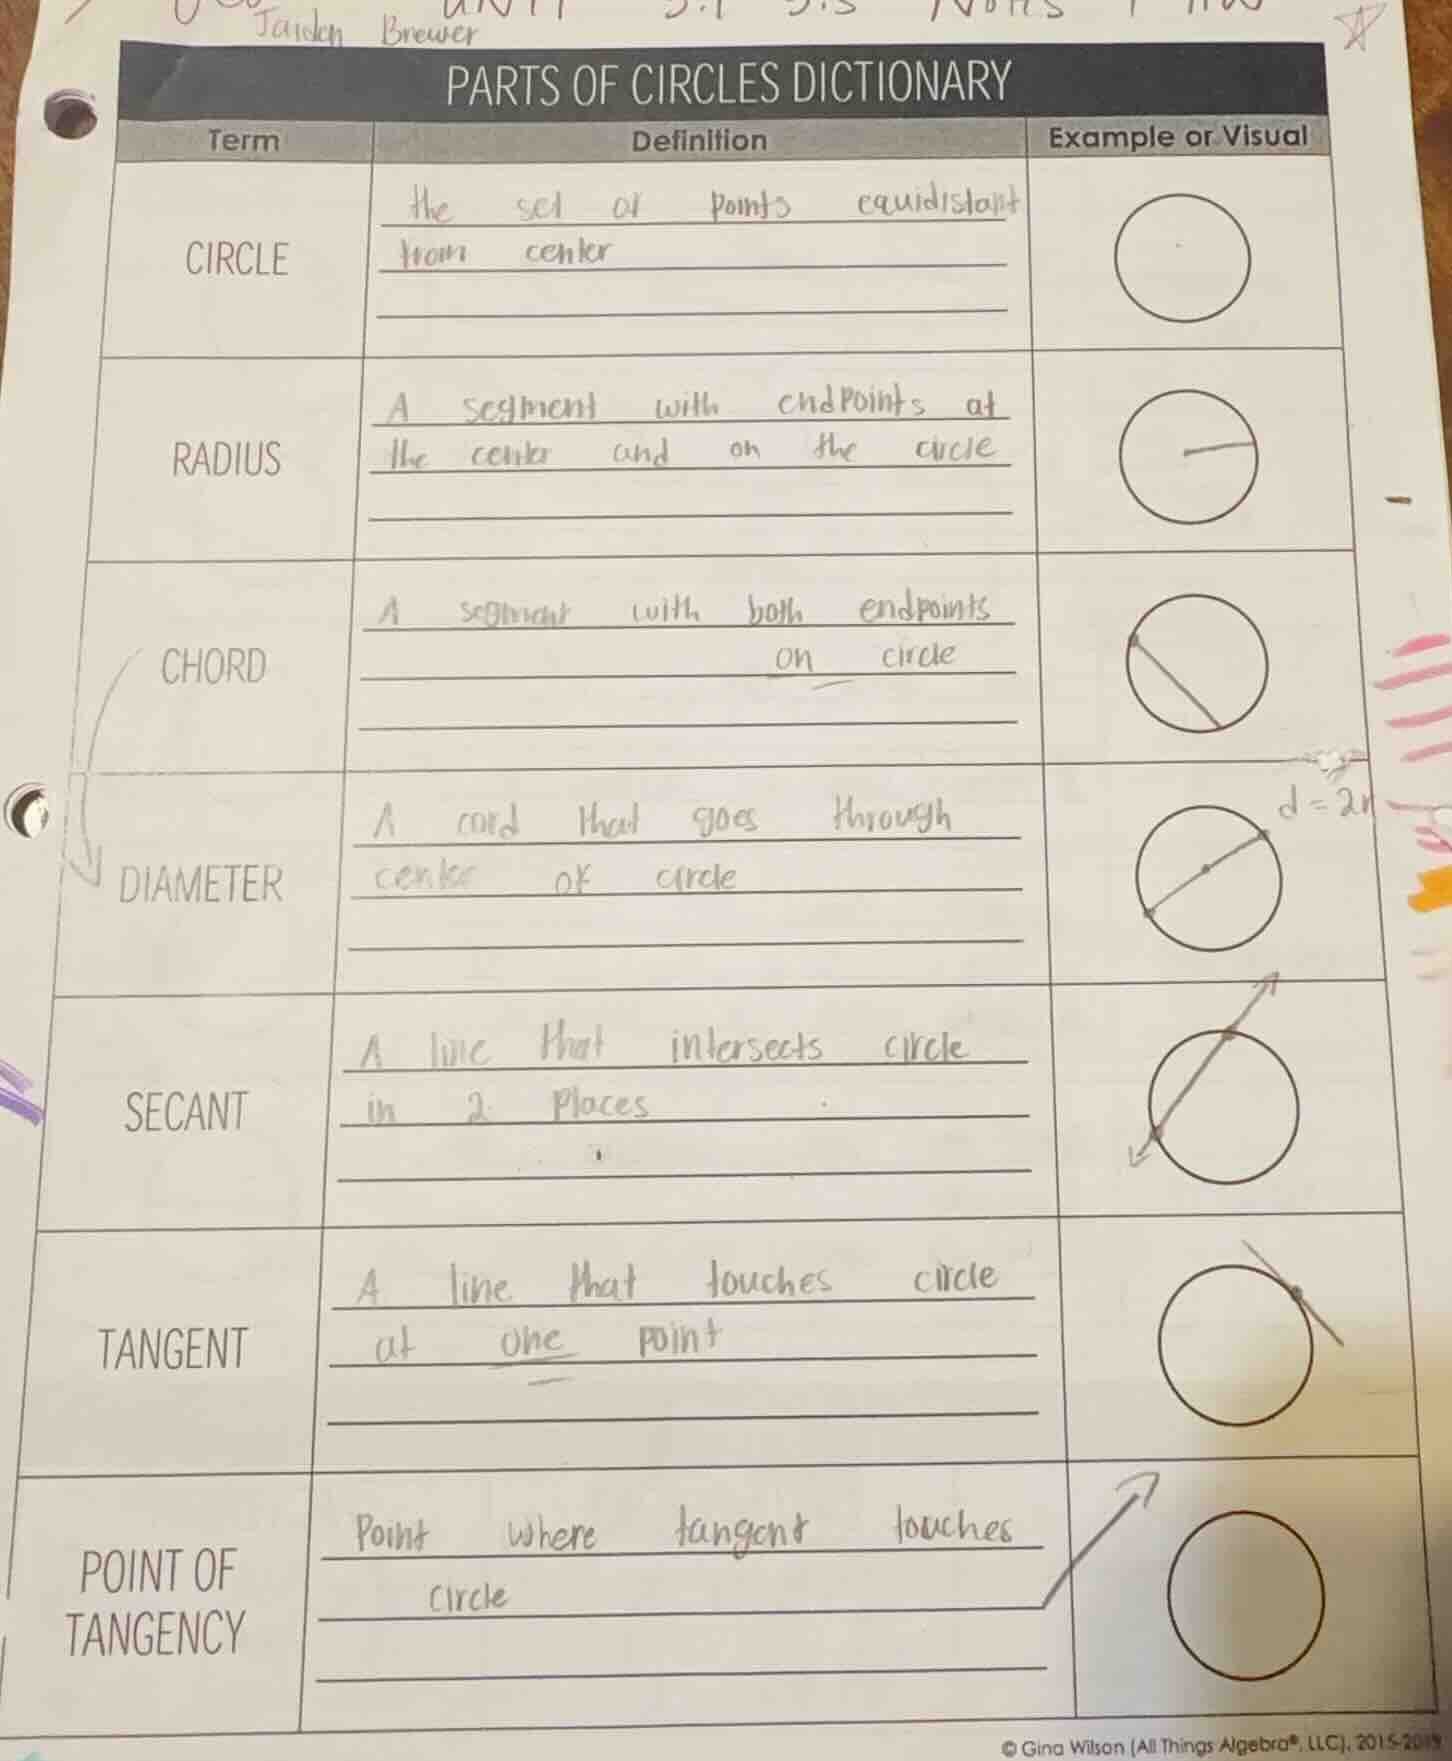 UNIT 5.1 5.3 Notes + HW
Jaiden Brewer
PARTS OF CIRCLES DICTIONARY
Term Definition Example or Visual
CIRCLE
the set of points equidistant
from center
RADIUS
A segment with endpoints at
the center and on the circle
CHORD
A segment with both endpoints
on circle
DIAMETER
A cord that goes through
center of circle
d = 2r
SECANT
A line that intersects circle
in 2 places
TANGENT
A line that touches circle
at one point
POINT OF
TANGENCY
Point where tangent touches
circle
© Gina Wilson (All Things Algebra®, LLC), 2015-2019